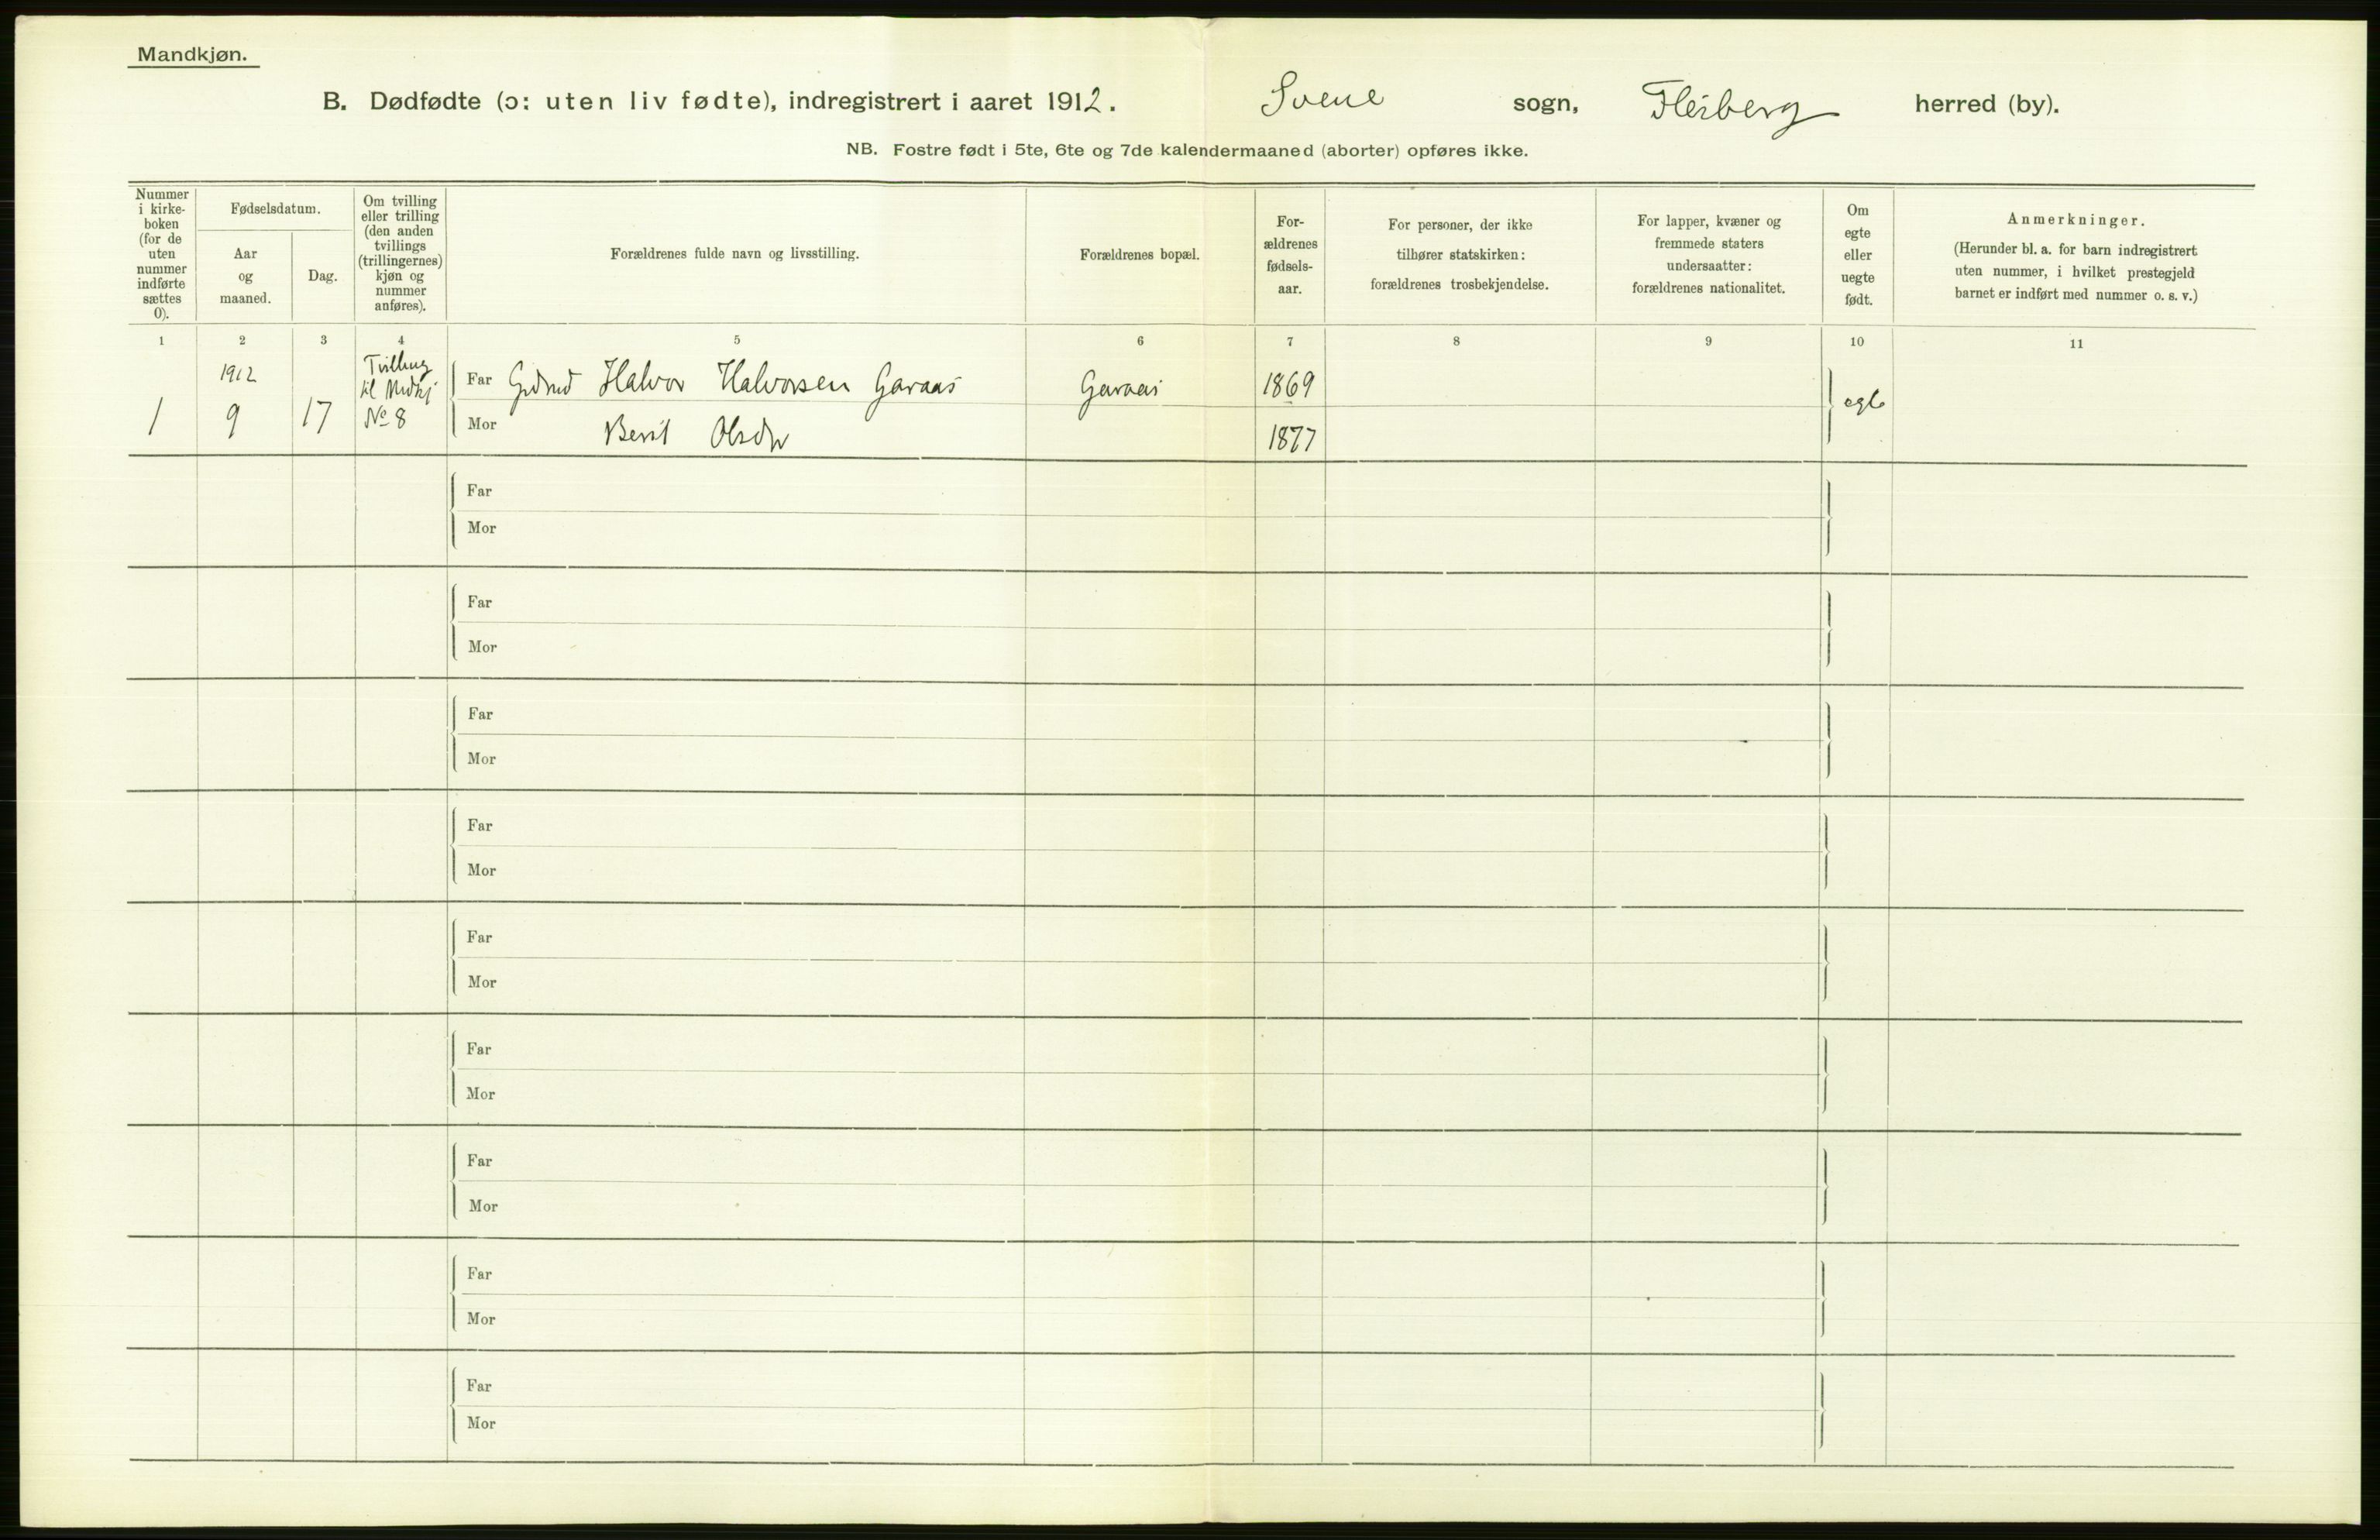 Mandkjøn.
B. Dødfødte (ɔ: uten liv fødte), indregistrert i aaret 1912. Svene sogn, Flesberg herred (by).
NB. Fostre født i 5te, 6te og 7de kalendermaaned (aborter) opføres ikke.
Nummer i kirke-boken (for de uten nummer indførte sættes 0).
Fødselsdatum.
Aar og maaned.
Dag.
Om tvilling eller trilling (den anden tvillings (trillingernes) kjøn og nummer anføres).
Forældrenes fulde navn og livsstilling.
Forældrenes bopæl.
For-ældrenes fødsels-aar.
For personer, der ikke tilhører statskirken: forældrenes trosbekjendelse.
For lapper, kvæner og fremmede staters undersaatter: forældrenes nationalitet.
Om egte eller uegte født.
Anmerkninger.
(Herunder bl. a. for barn indregistrert uten nummer, i hvilket prestegjeld barnet er indført med nummer o. s. v.)
1 2 3 4 5 6 7 8 9 10 11
1912
1 9 17
Tvilling
til
No 8
Far Halvor Halvorsen Garaas Garaas 1869
Mor Berit Olsdtr 1877
egte
Far
Mor
Far
Mor
Far
Mor
Far
Mor
Far
Mor
Far
Mor
Far
Mor
Far
Mor
Far
Mor